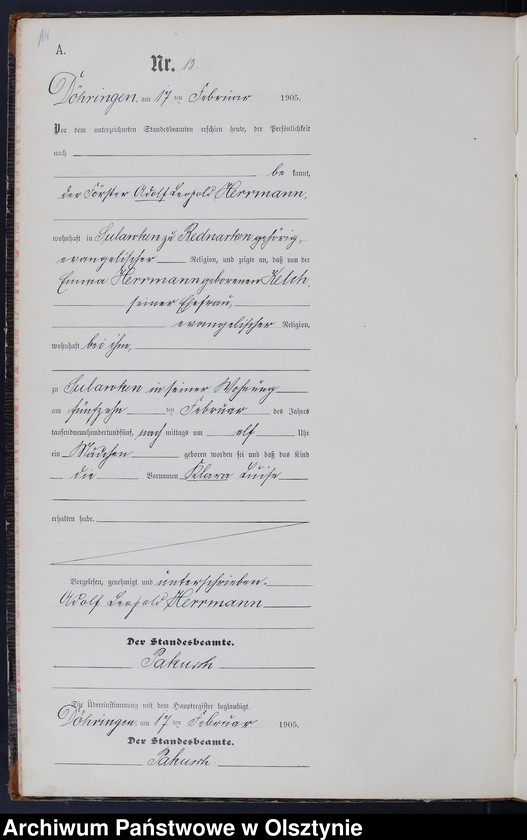 A.
Nr. 13
Döhringen, am 17 ten Februar 1905.
Vor dem unterzeichneten Standesbeamten erschien heute, der Persönlichkeit
nach
be kannt,
der Förster Adolf Leopold Herrmann,
wohnhaft in Sulawken zu Bednarken gehörig,
evangelischer Religion, und zeigte an, daß von der
Emma Herrmann geborenen Kelch,
seiner Ehefrau,
evangelischer Religion,
wohnhaft bei ihm,
zu Sulawken in seiner Wohnung
am fünfzehn ten Februar des Jahres
tausendneunhundertundfünf, nach mittags um elf Uhr
ein Mädchen geboren worden sei und daß das Kind
die Vornamen Klara Luise
erhalten habe.
Vorgelesen, genehmigt und unterschrieben.
Adolf Leopold Herrmann
Der Standesbeamte.
Pakusch
Die Übereinstimmung mit dem Hauptregister beglaubigt.
Döhringen, am 17 ten Februar 1905.
Der Standesbeamte.
Pakusch
Archiwum Państwowe w Olsztynie